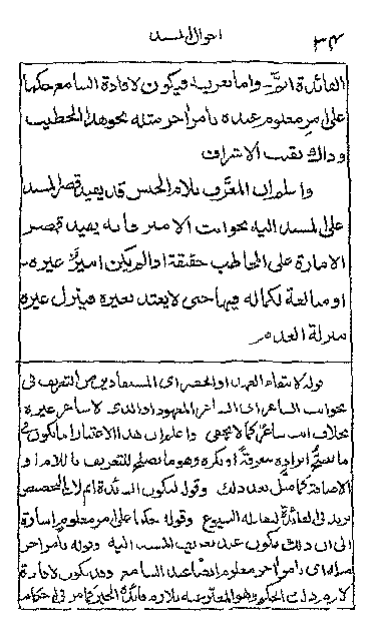 احوال المسند
٣٤
الفائدة اتم واما تعريفه فيكون لافادة السامع حكما
على امر معلوم عنده بامر اخر مثله نحو هذا الخطيب
وذاك نقيب الاشراف
واعلم ان المعرف بلام الجنس قد يفيد قصر المسند
على المسند اليه نحو انت الامير فانه يفيد قصر
الامارة على المخاطب حقيقة اذا لم يكن امير غيره
او مبالغة لكماله فيها حتى لا يعتد بغيره فينزل غيره
منزلة العدم
قوله لانتفاء العهد او الحصر اى المستفادين من التعريف فى
نحو انت الشاعر اى الشاعر المعهود او الذى لا شاعر غيره
بخلاف انت شاعر كما لا يخفى واعلم ان هذا الاعتبار انما يكون فى
ما يصح ايراده معرفة او نكرة وهو ما يصلح للتعريف باللام او
الاضافة كما مثل بعد ذلك وقوله ليكون الفائدة اتم لان التخصيص
يزيد فى الفائدة وقوله حكما على امر معلوم اشارة
الى ان ذلك يكون عند تعريف المسند اليه وقوله بامر اخر
مثله اى بامر اخر معلوم ايضا عند السامع وقد يكون لافادة
لازم ذلك الحكم وهو المعبر عنه بلازم فائدة الخبر كما مر فى